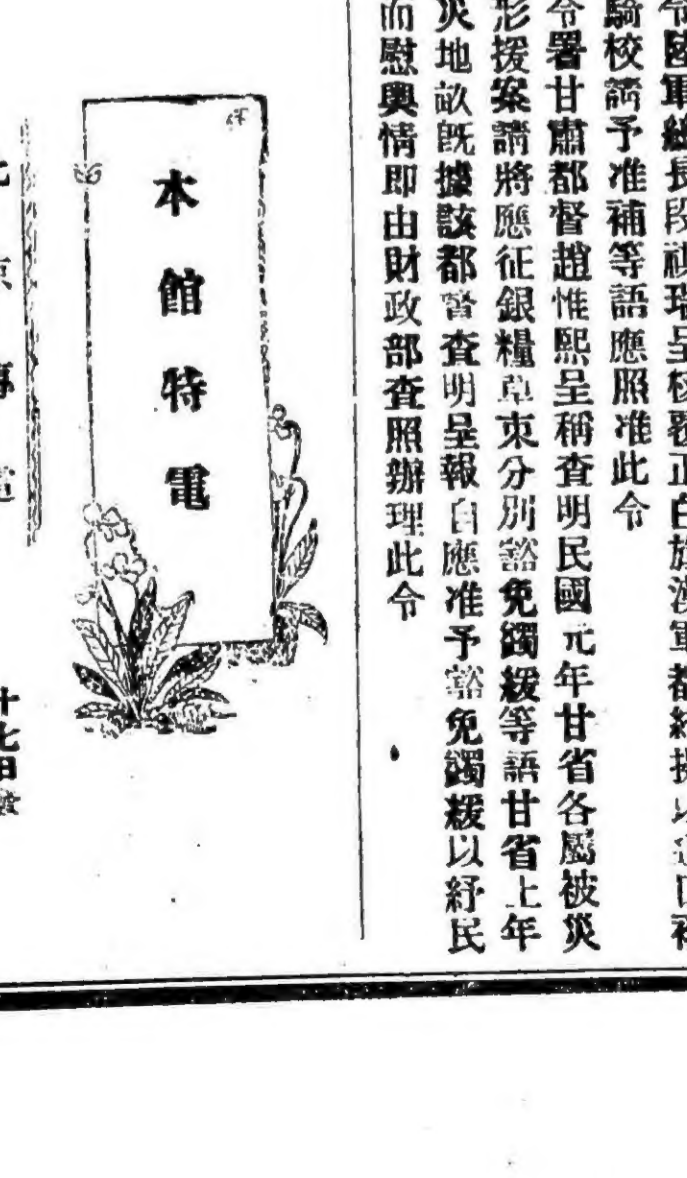 令陸軍總長段祺瑞呈核覆正白旗漢軍都統
驍校請予准補等語應照准此令
令署甘肅都督趙惟熙呈稱查明民國元年甘省各屬被災
形援案請將應征銀糧草束分別豁免蠲緩等語甘省上年
災地畝既據該都督查明呈報自應准予豁免蠲緩以紓民
而慰輿情即由財政部查照辦理此令
本館特電
北京專電
十七日發